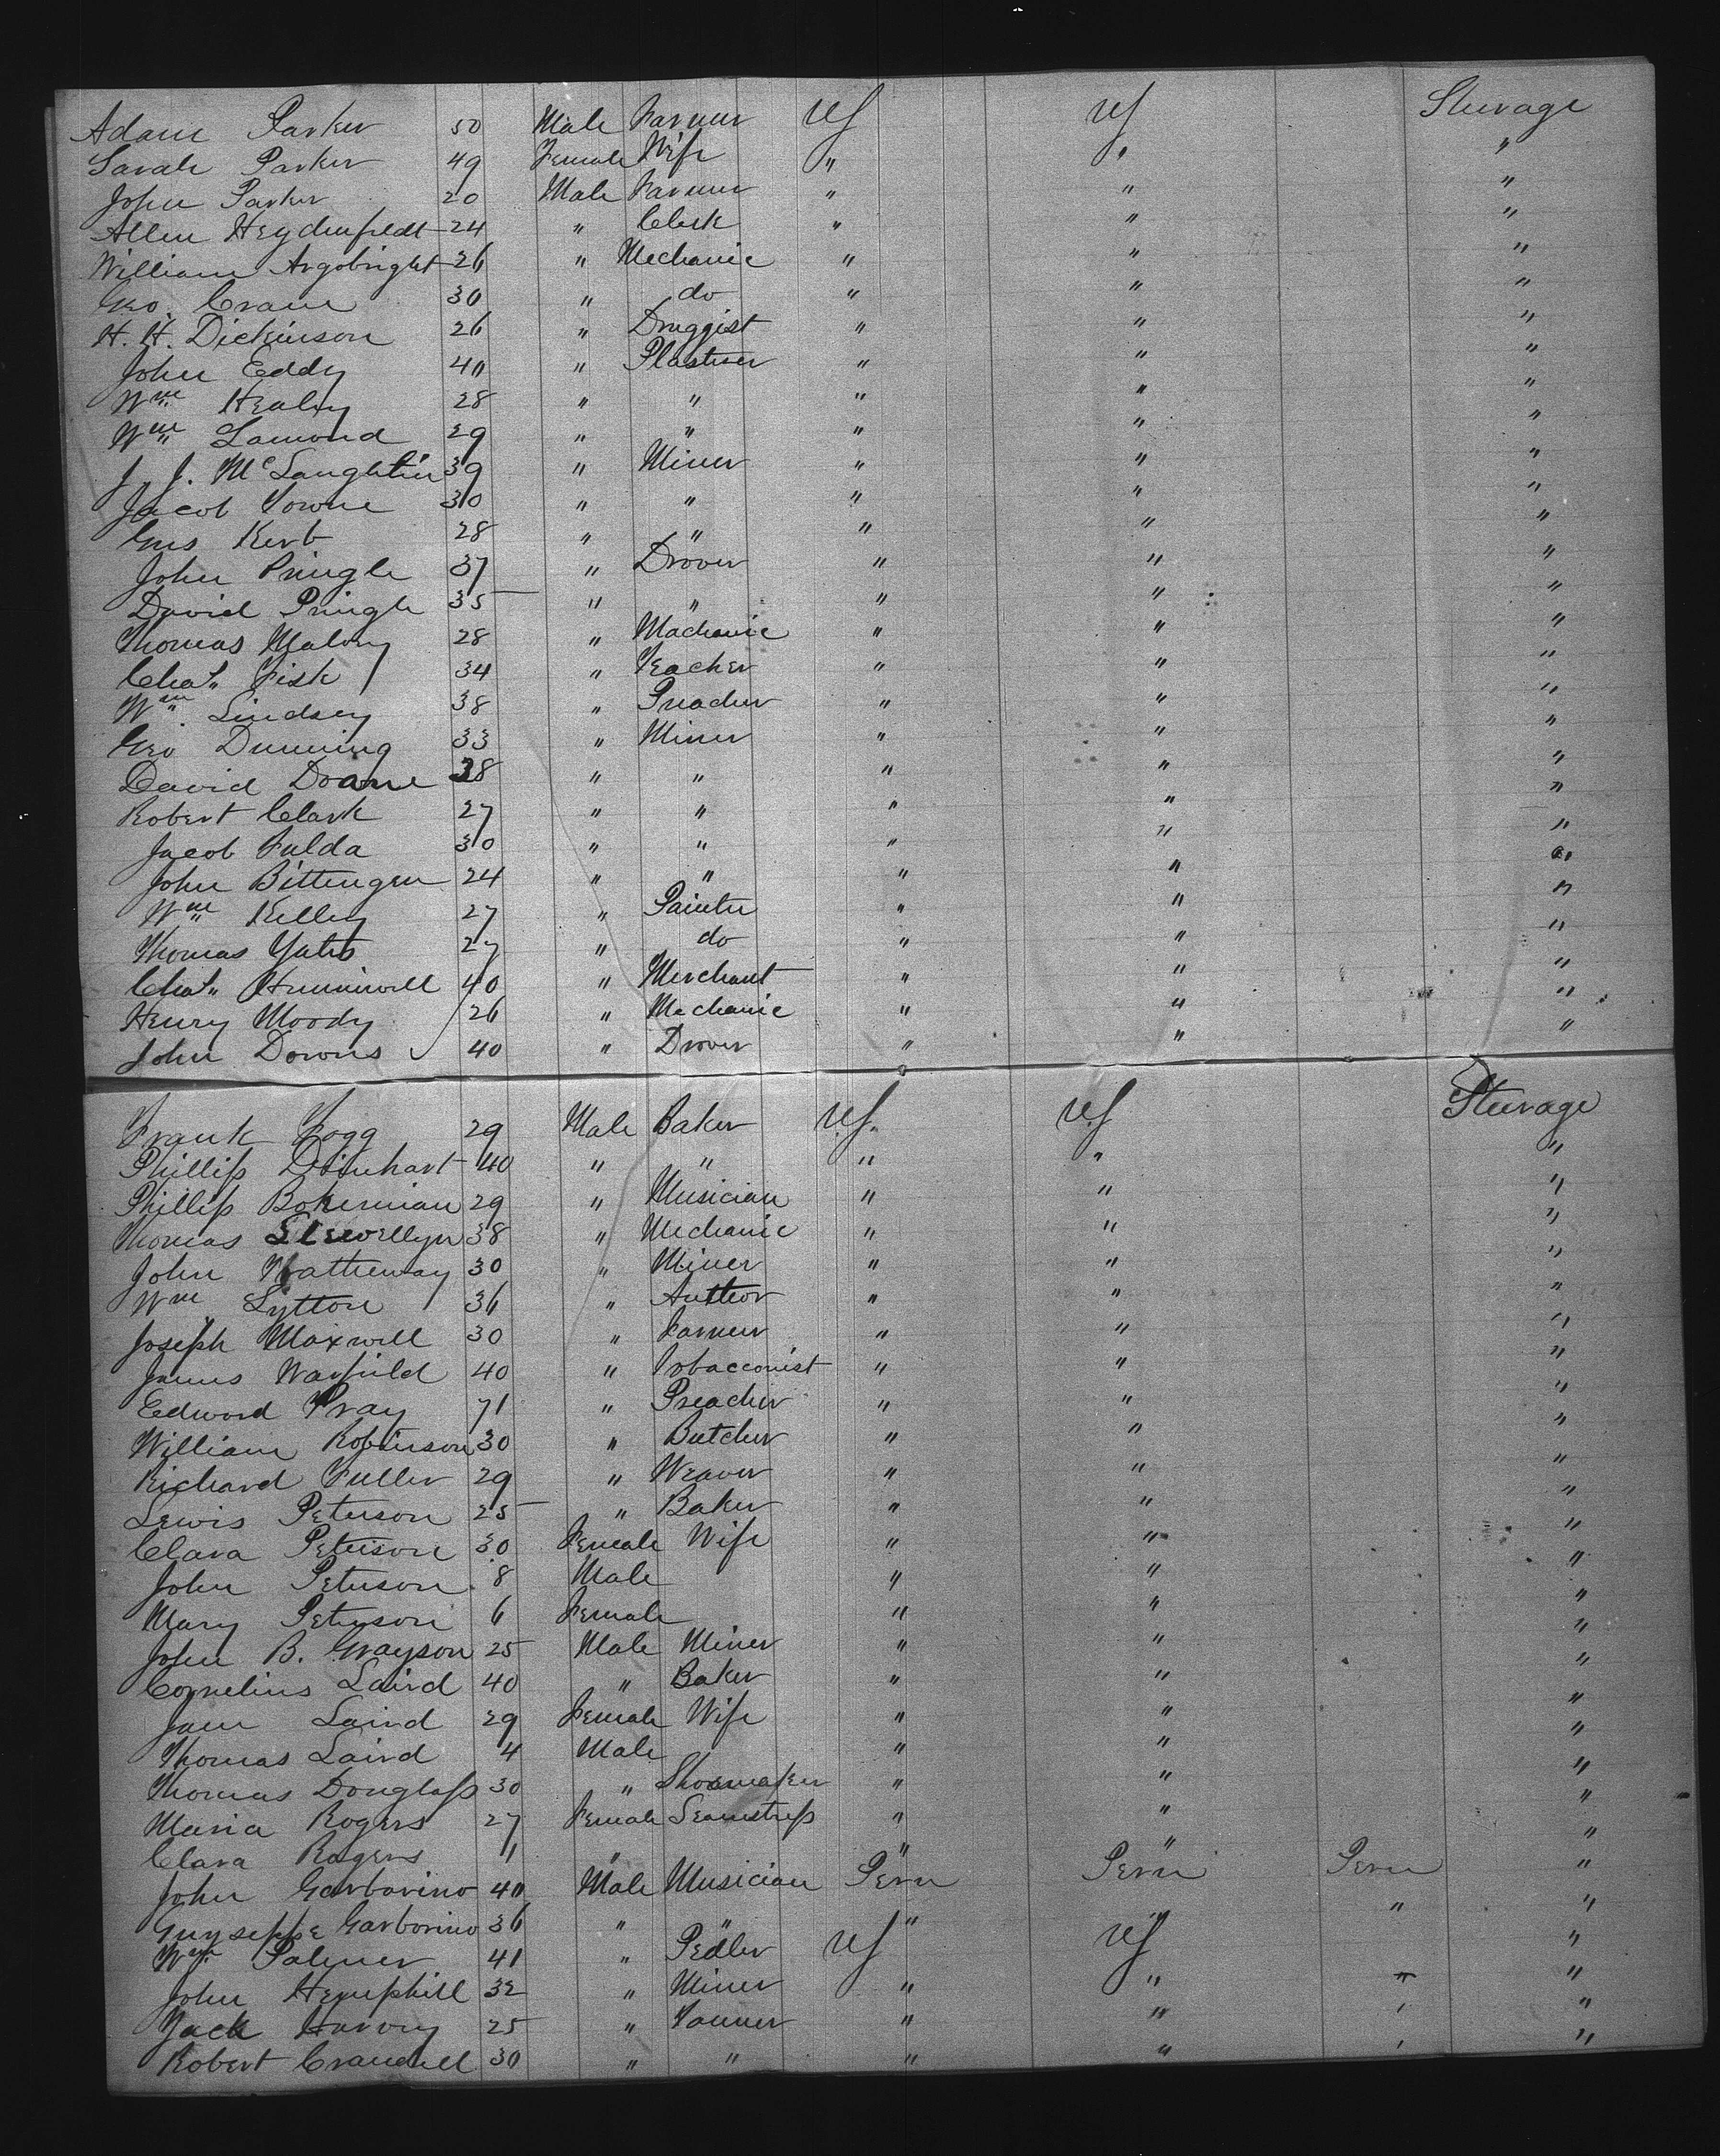 Adam Parker 50 Male Farmer US US Steerage
Sarah Parker 49 Female Wife " " "
John Parker 20 Male Farmer " " "
Allen Heydenfeldt 24 " Clerk " " "
William Argobright 26 " Mechanic " " "
Geo. Crane 30 " do " " "
H. H. Dickinson 26 " Druggist " " "
John Eddy 40 " Plasterer " " "
Wm Healey 28 " " " " "
Wm Lamond 29 " " " " "
J. J. McLaughlin 39 " Miner " " "
Jacob 30 " " " " "
Gus Kerb 28 " " " " "
John Pringle 37 " Drover " " "
David Pringle 35 " " " " "
Thomas Malony 28 " Machanic " " "
Chas. Fisk 34 " Teacher " " "
Wm. Lindsey 38 " Preacher " " "
Geo Dunning 33 " Miner " " "
David Doane 38 " " " " "
Robert Clark 27 " " " " "
Jacob Fulda 30 " " " " "
John Bittengen 24 " " " " "
Wm Kelley 27 " Painter " " "
Thomas Yates 27 " do " " "
Chas. Hunniwell 40 " Merchant " " "
Henry Moody 26 " Mechanic " " "
John Downs 40 " Drover " " "
Frank Fogg 29 Male Baker US. US Steerage
Phillip 40 " " " " "
Phillip Bohemian 29 " Musician " " "
Thomas Llewellyn 38 " Mechanic " " "
John Hatheway 30 " Miner " " "
Wm Lytton 36 " Author " " "
Joseph Maxwell 30 " Farmer " " "
James Warfield 40 " Tobacconist " " "
Edward Pray 71 " Preacher " " "
William Robinson 30 " Butcher " " "
Richard Fuller 29 " Weaver " " "
Lewis Peterson 25 " Baker " " "
Clara Peterson 30 Female Wife " " "
John Peterson 8 Male " " "
Mary Peterson 6 Female " " "
John B. Grayson 25 Male Miner " " "
Cornelius Laird 40 " Baker " " "
Jane Laird 29 Female Wife " " "
Thomas Laird 4 Male " " "
Thomas Douglass 30 " Shoemaker " " "
Maria Rogers 27 Female Seamstress " " "
Clara Rogers 11 " " " "
John Garbarino 40 Male Musician Peru Peru Peru "
Guyseppe Garborino 36 " " " " " "
Wm. Palmer 41 " Pedler US US "
John Hemphill 32 " Miner " " " "
Jack Harvey 25 " Tanner " " " "
Robert Crandell 30 " " " " " "